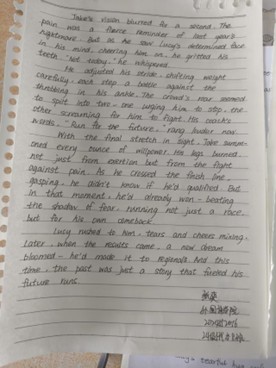 Jake's vision blurred for a second. The
pain was a fierce reminder of last year's
nightmare. But as he saw Lucy's determined face
in his mind, cheering him on, he gritted his
teeth. "Not today," he whispered.
He adjusted his stride, shifting weight
carefully, each step a battle against the
throbbing in his ankle. The crowd's roar seemed
to split into two - one urging him to stop, the
other screaming for him to fight. His coach's
words, "Run for the future," rang louder now.
With the final stretch in sight, Jake summ-
oned every ounce of willpower. His legs burned,
not just from exertion but from the fight
against pain. As he crossed the finish line,
gasping, he didn't know if he'd qualified. But
in that moment, he'd already won - beating
the shadow of fear, running not just a race,
but for his own comeback.
Lucy rushed to him, tears and cheers mixing.
Later, when the results came, a new dream
bloomed - he'd made it to regionals. And this
time, the past was just a story that fueled his
future runs.
外国语学院